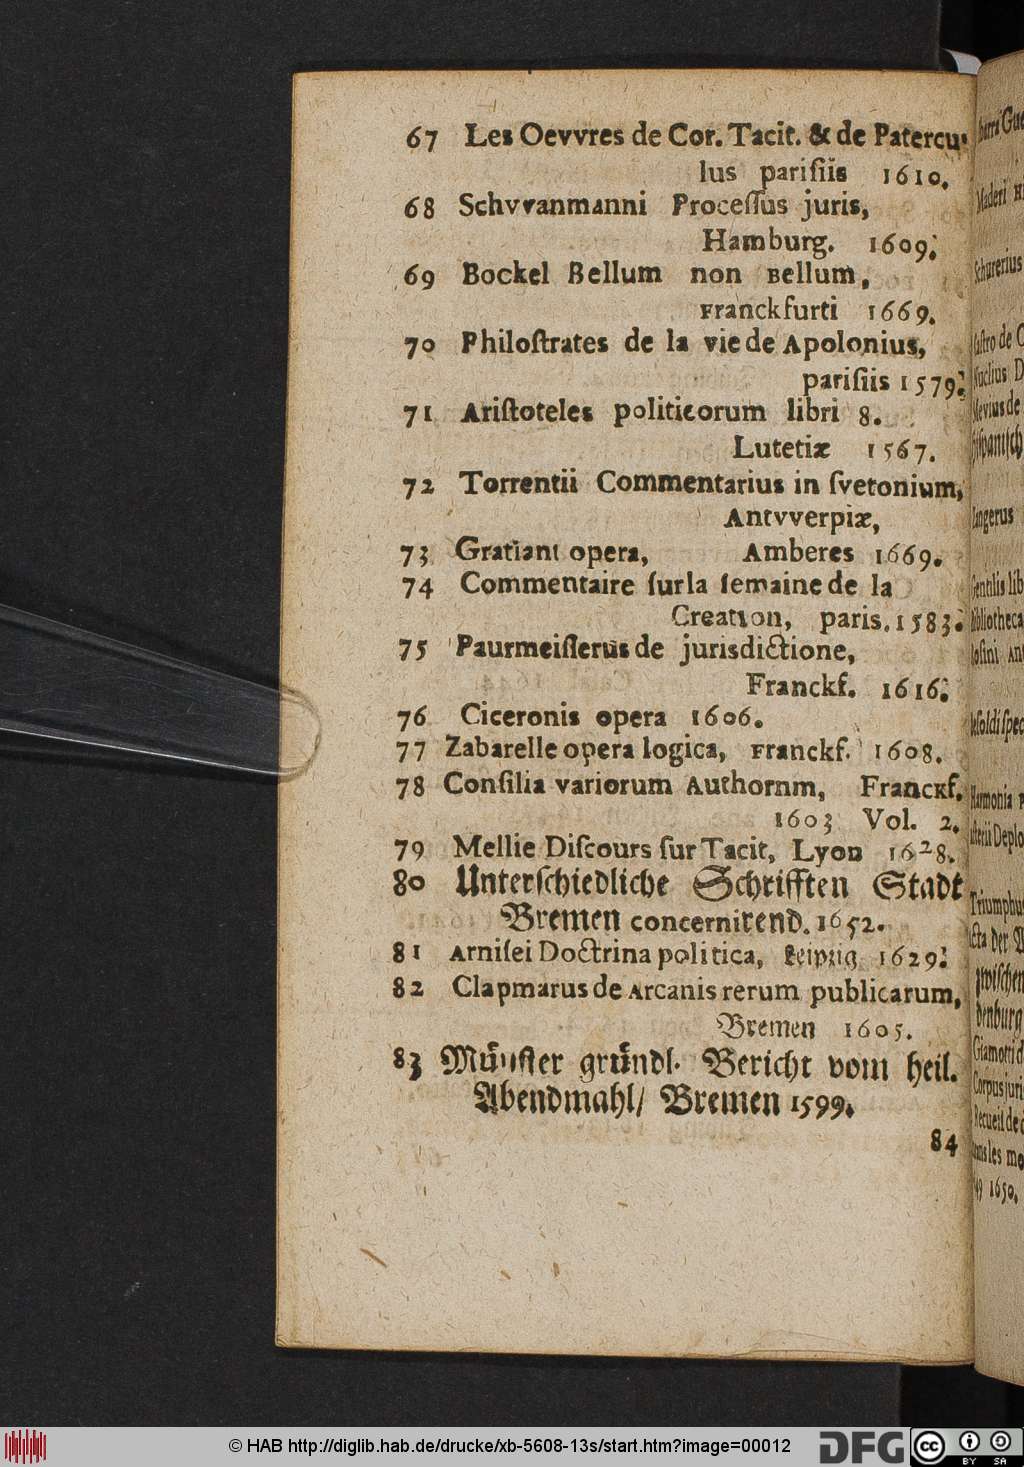 67 Les Oevvres de Cor. Tacit. & de Patercu-
lus parisiis 1610.
68 Schvvanmanni Processus juris,
Hamburg. 1609.
69 Bockel Bellum non Bellum,
Franckfurti 1669.
70 Philostrates de la vie de Apolonius,
parisiis 1579.
71 Aristoteles politicorum libri 8.
Lutetiæ 1567.
72 Torrentii Commentarius in svetonium,
Antvverpiæ,
73 Gratiani opera, Amberes 1669.
74 Commentaire sur la semaine de la
Creation, paris. 1583.
75 Paurmeisterus de jurisdictione,
Franckf. 1616.
76 Ciceronis opera 1606.
77 Zabarelle opera logica, Franckf. 1608.
78 Consilia variorum Authornm, Franckf.
1603 Vol. 2.
79 Mellie Discours sur Tacit, Lyon 1628.
80 Unterschiedliche Schrifften Stadt
Bremen concernirend. 1652.
81 Arnisei Doctrina politica, Leipzig 1629.
82 Clapmarus de Arcanis rerum publicarum,
Bremen 1605.
83 Münster gründl. Bericht vom heil.
Abendmahl/ Bremen 1599.
84
© HAB http://diglib.hab.de/drucke/xb-5608-13s/start.htm?image=00012
DFG
cc BY SA